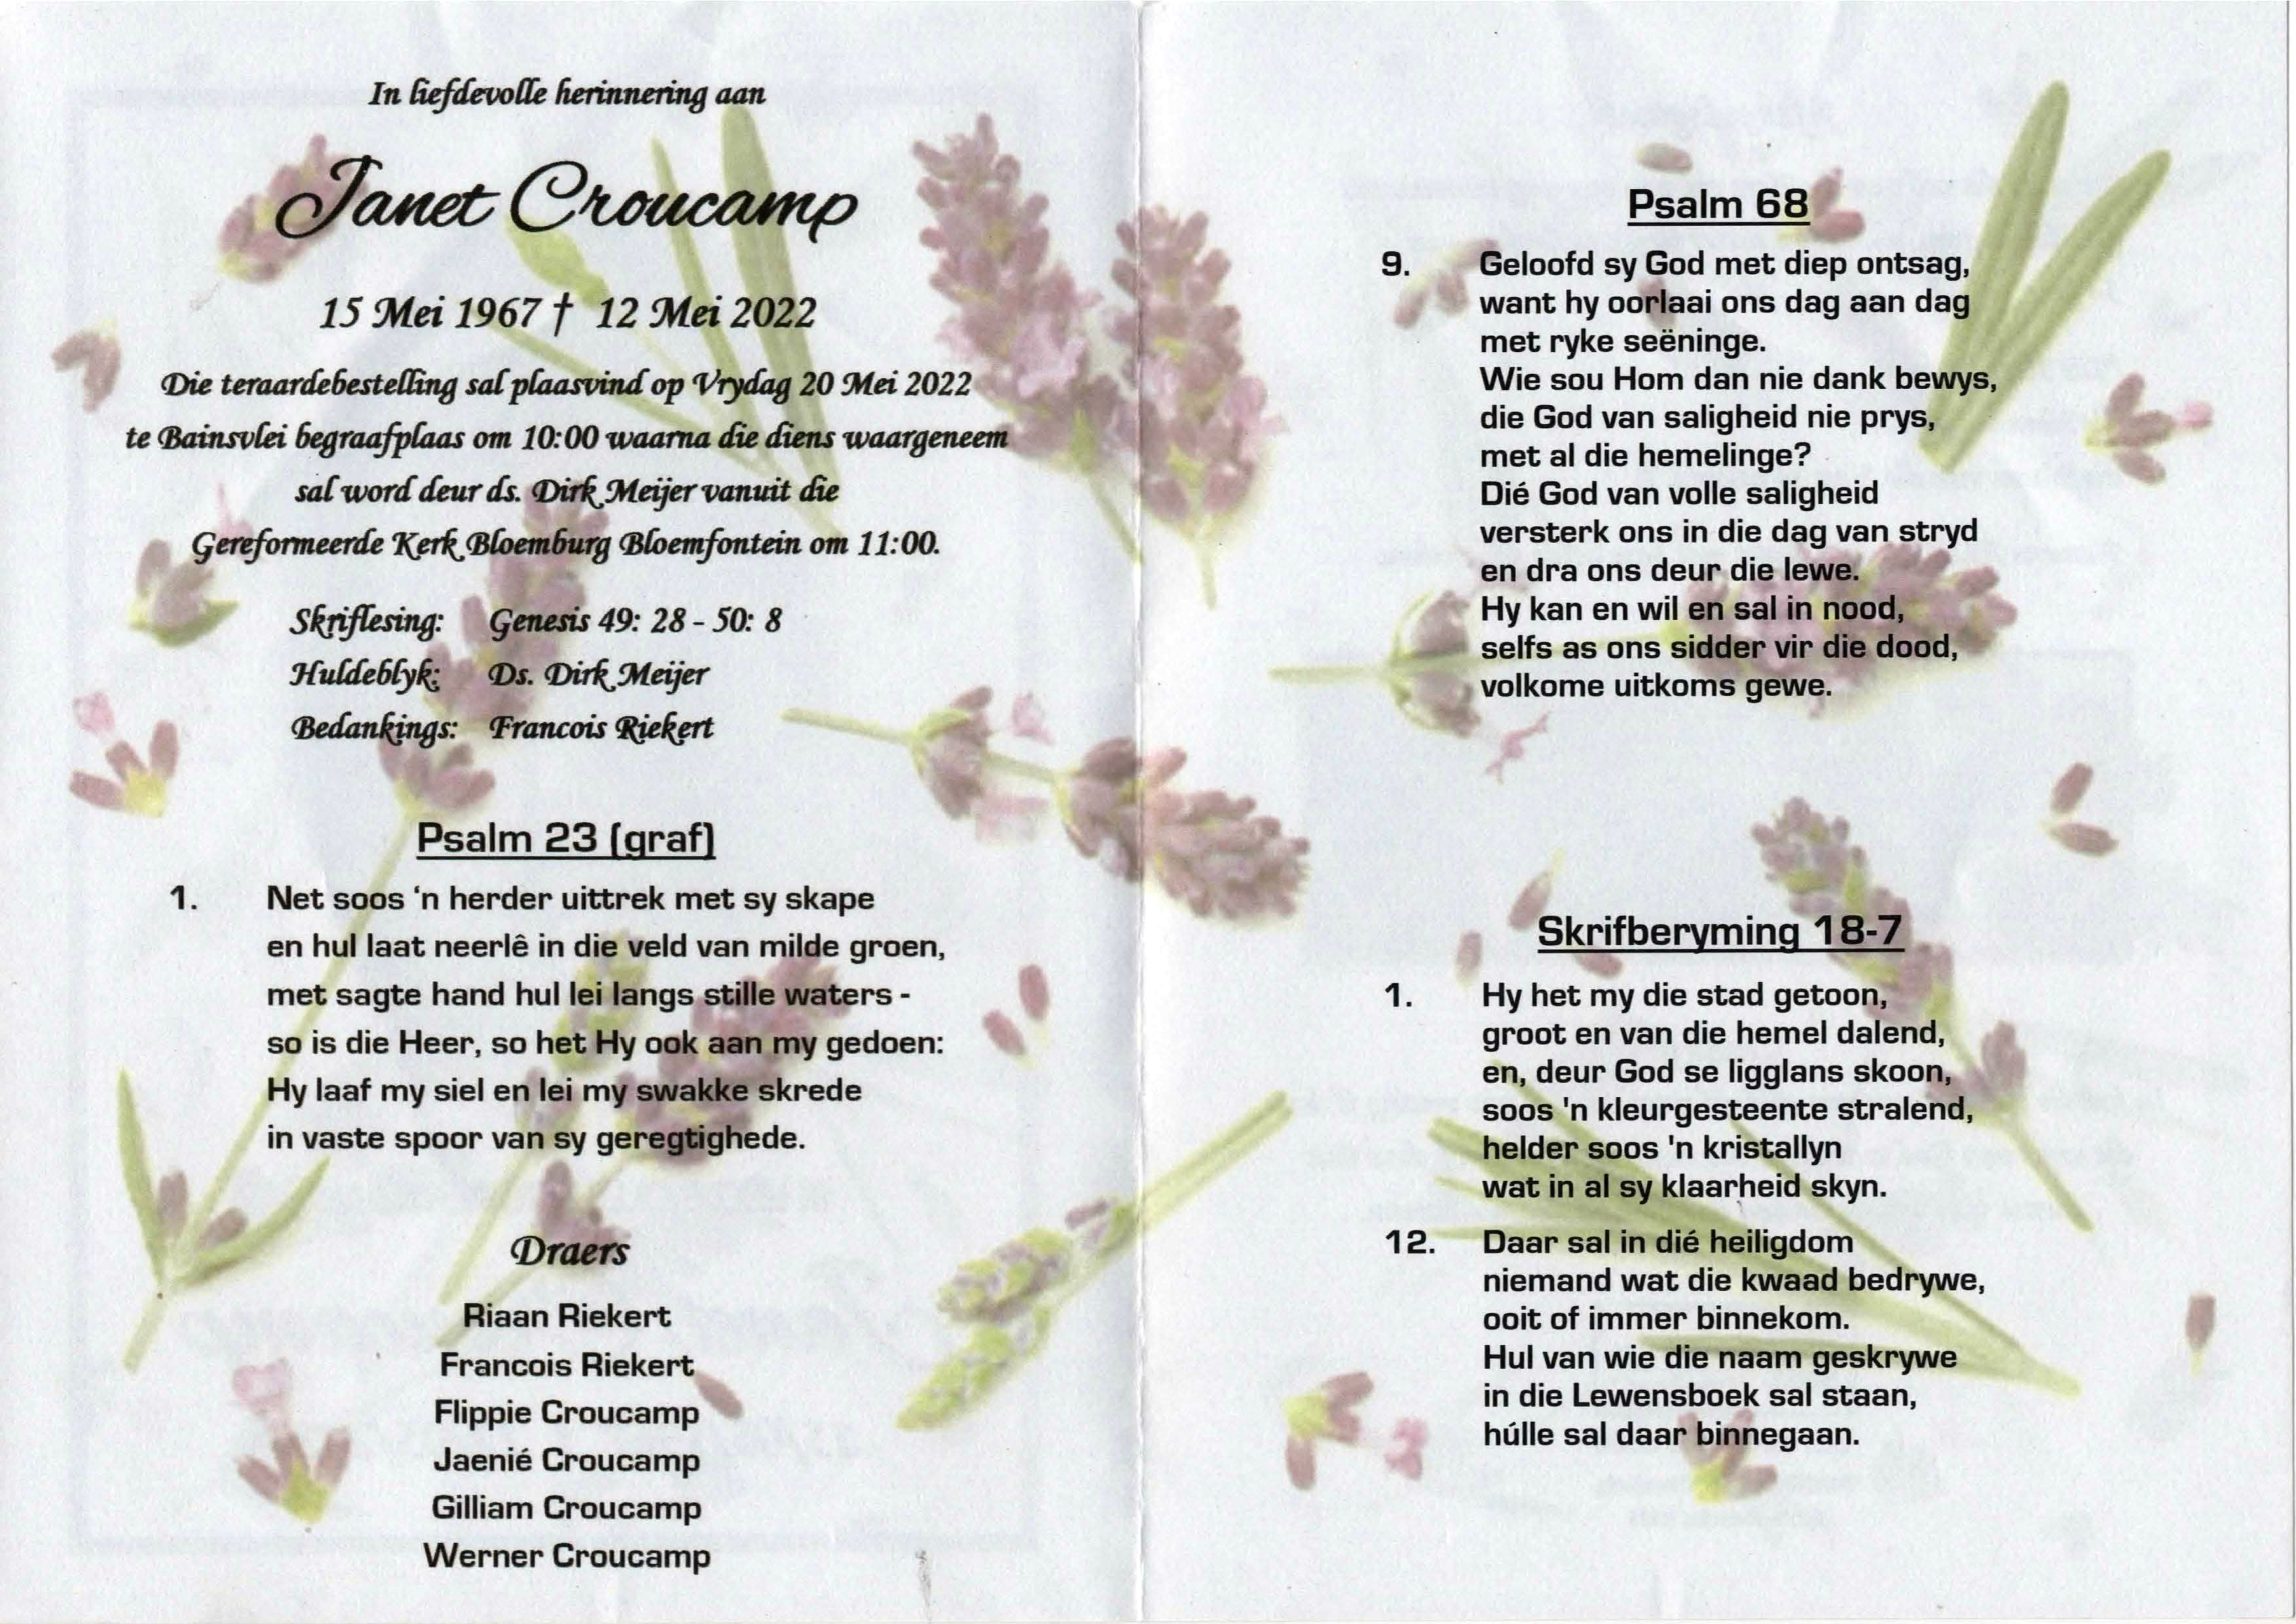 In liefdevolle herinnering aan
Janet Croucamp
15 Mei 1967 † 12 Mei 2022
Die teraardebestelling sal plaasvind op Vrydag 20 Mei 2022
te Bainsvlei begraafplaas om 10:00 waarna die diens waargeneem
sal word deur ds. Dirk Meijer vanuit die
Gereformeerde Kerk Bloemburg Bloemfontein om 11:00.
Skriflesing: Genesis 49: 28 - 50: 8
Huldeblyk: Ds. Dirk Meijer
Bedankings: Francois Riekert
Psalm 23 (graf)
1. Net soos ‘n herder uittrek met sy skape
en hul laat neerlê in die veld van milde groen,
met sagte hand hul lei langs stille waters -
so is die Heer, so het Hy ook aan my gedoen:
Hy laaf my siel en lei my swakke skrede
in vaste spoor van sy geregtighede.
Draers
Riaan Riekert
Francois Riekert
Flippie Croucamp
Jaenié Croucamp
Gilliam Croucamp
Werner Croucamp
Psalm 68
9. Geloofd sy God met diep ontsag,
want hy oorlaai ons dag aan dag
met ryke seëninge.
Wie sou Hom dan nie dank bewys,
die God van saligheid nie prys,
met al die hemelinge?
Dié God van volle saligheid
versterk ons in die dag van stryd
en dra ons deur die lewe.
Hy kan en wil en sal in nood,
selfs as ons sidder vir die dood,
volkome uitkoms gewe.
Skrifberyming 18-7
1. Hy het my die stad getoon,
groot en van die hemel dalend,
en, deur God se ligglans skoon,
soos 'n kleurgesteente stralend,
helder soos 'n kristallyn
wat in al sy klaarheid skyn.
12. Daar sal in dié heiligdom
niemand wat die kwaad bedrywe,
ooit of immer binnekom.
Hul van wie die naam geskrywe
in die Lewensboek sal staan,
húlle sal daar binnegaan.